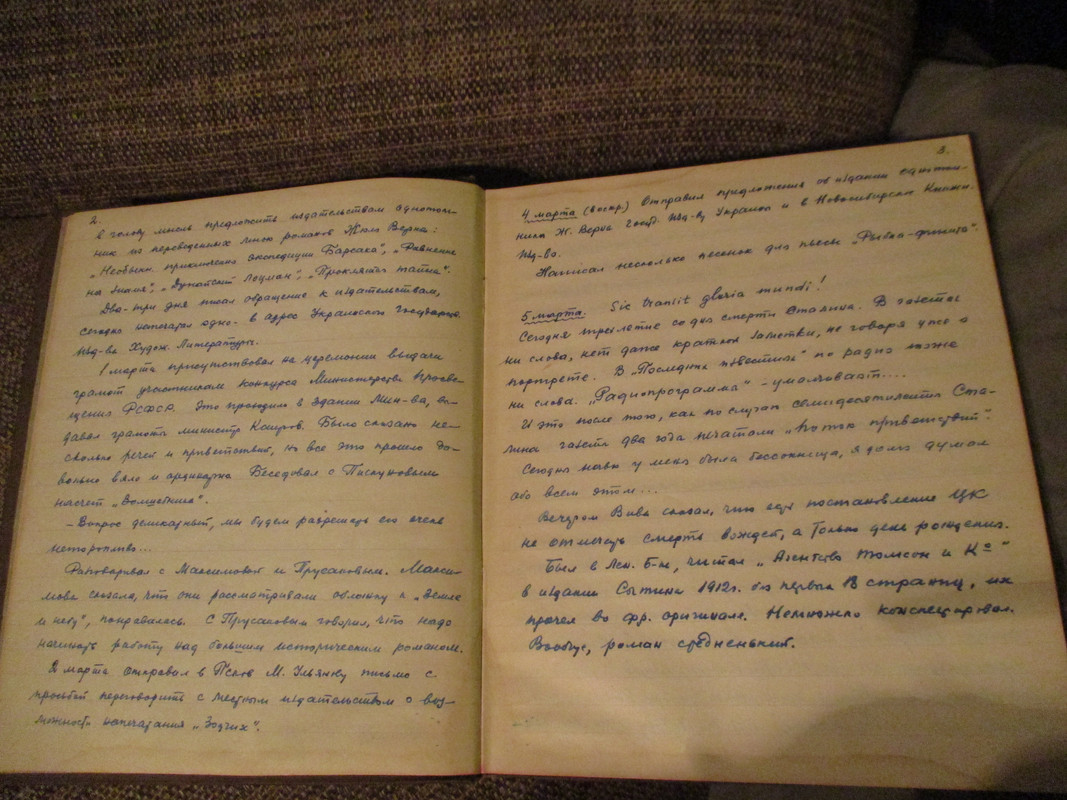 2.
в голову мысль предложить издательствам однотом-
ник из переведенных мною романов Жюля Верна:
„Необыкн. приключения экспедиции Барсака", „Равнение
на знамя", „Дунайский лоцман", „Проклятая тайна".
Два-три дня писал обращение к издательствам,
сегодня напечатал одно - в адрес Украинского Государств.
Изд-ва Худож. Литературы.
1 марта присутствовал на церемонии выдачи
грамот участникам конкурса Министерства Просве-
щения РСФСР. Это проходило в здании Мин-ва, вы-
давал грамоты министр Каиров. Было сказано не-
сколько речей и приветствий, но все это прошло до-
вольно вяло и ординарно. Беседовал с Пискуновым
насчет „Волшебника".
- Вопрос деликатный, мы будем разрешать его очень
неторопливо...
Разговаривал с Максимовой и Прусаковым. Макси-
мова сказала, что они рассматривали обложку к „Земле
и небу", понравилась. С Прусаковым говорил, что надо
начинать работу над большим историческим романом.
марта отправил в Псков М. Ульянову письмо с
просьбой переговорить с местным издательством о воз-
можности напечатания „Зодчих".
3.
4 марта (воскр.) Отправил предложения об издании однотом-
ника Ж. Верна Госуд. Изд-ву Украины и в Новосибирское Книжн.
Изд-во.
Написал несколько песенок для пьесы „Рыбка-финита".
5 марта. Sic transit gloria mundi!
Сегодня трехлетие со дня смерти Сталина. В газетах
ни слова, нет даже краткой заметки, не говоря уже о
портрете. В „Последних известиях" по радио тоже
ни слова. „Радиопрограмма" - умалчивает...
И это после того, как по случаю семидесятилетия Ста-
лина газеты два года печатали „Поток приветствий".
Сегодня ночью у меня была бессонница, я долго думал
обо всем этом...
Вечером Вива сказал, что есть постановление ЦК
не отмечать смерть вождей, а только день рождения.
Был в Лен. Б-ке, читал „Агентство Томсон и Кº"
в издании Сытина 1912г. без первых 13 страниц, их
прочел во фр. оригинале. Немножко конспектировал.
Вообще, роман средненький.